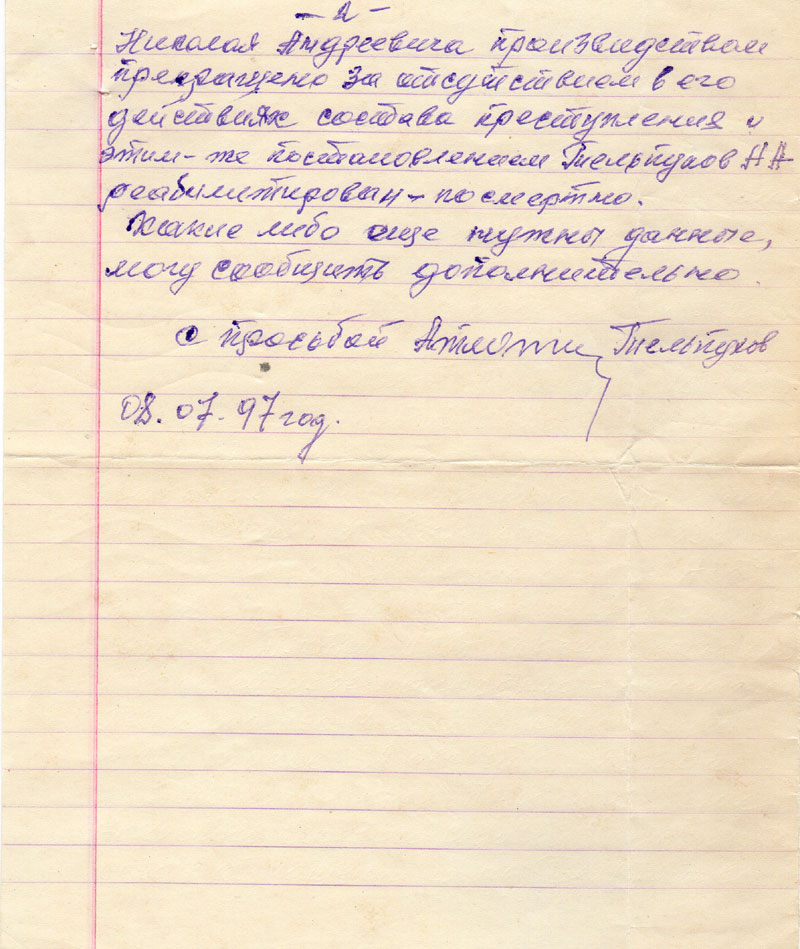 - 2 -
Николая Андреевича производством
прекращено за отсутствием в его
действиях состава преступления и
этим-же постановлением Тельпухов НА
реабилитирован - посмертно.
Какие либо еще нужны данные,
могу сообщить дополнительно.
С просьбой Тельпухов
08.07.97 год.